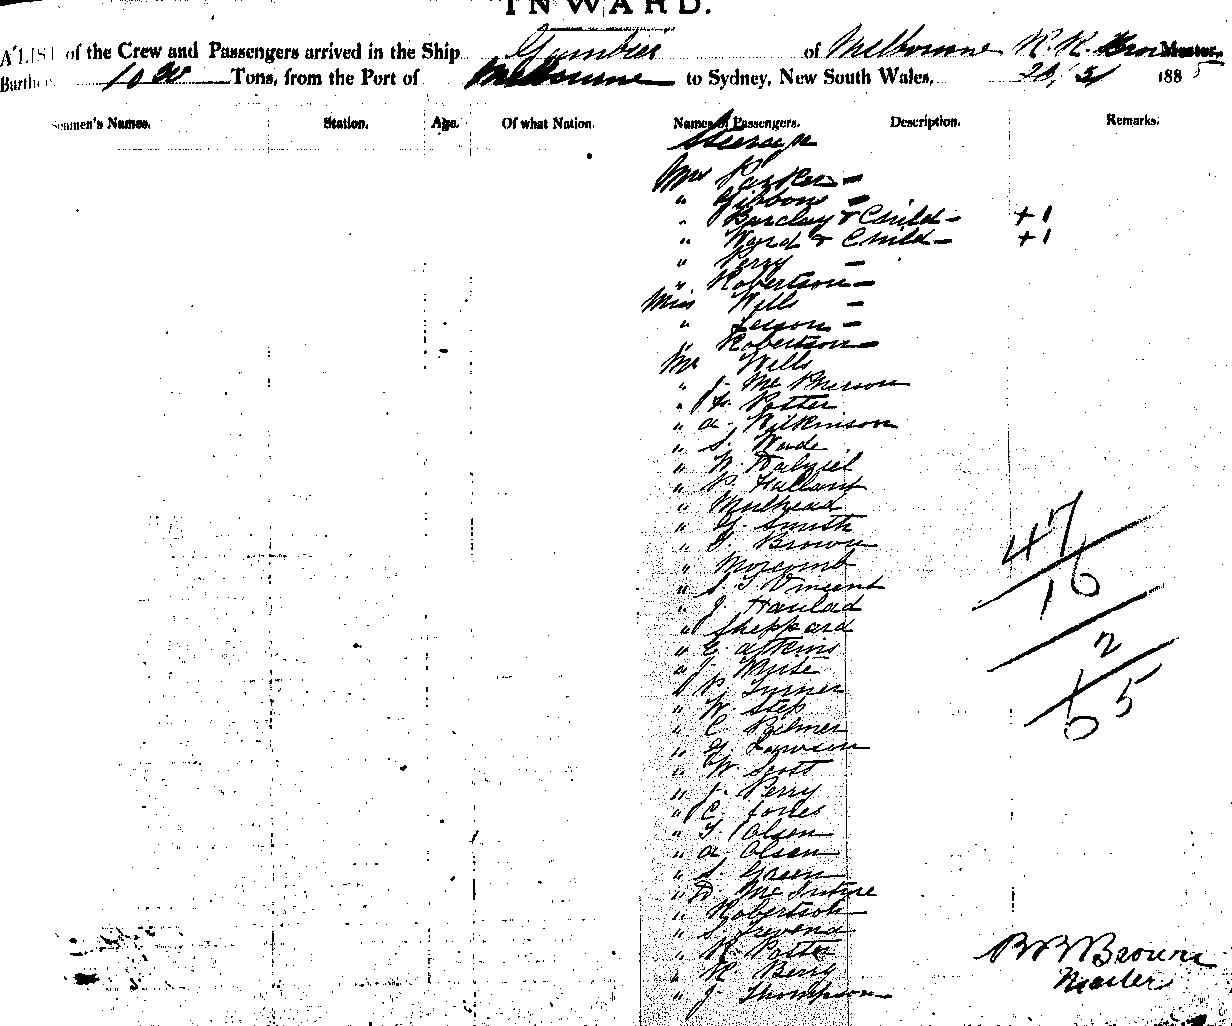 INWARD.
A LIST of the Crew and Passengers arrived in the Ship Gambier of Melbourne R. R. Brown Master,
Burthen Tons, from the Port of Melbourne to Sydney, New South Wales, 1885
Seamen's Names. Station. Age. Of what Nation. Names of Passengers. Description. Remarks.
Steerage
Mrs Parker -
" Gibbons -
" Barclay & Child - +1
" Ward & Child - +1
" Perry -
" Robertson -
Miss Wills -
" Lesson -
" Robertson -
Mr Wills
" J. McPherson
" Potter
" A. Wilkinson
" S. Wade
" W. Dalziel
" P. Hallant
" Mulhead
" G. Smith
" J. Brown
" Morcomb
" S. T. Vincent
" J. Haulad
" Sheppard
" E. Atkins
" J. White
" P. Turner
" W. Step
" C. Bilmer
" G. Lawson
" W. Scott
" J. Perry
" C. Jones
" T. Olsen
" A. Olsen
" S. Green
" D. McIntire
" Robertson
" S. Trevena
" R. Potts
" R. Berry
" J. Thompson
47
16
2
65
Brown
Master